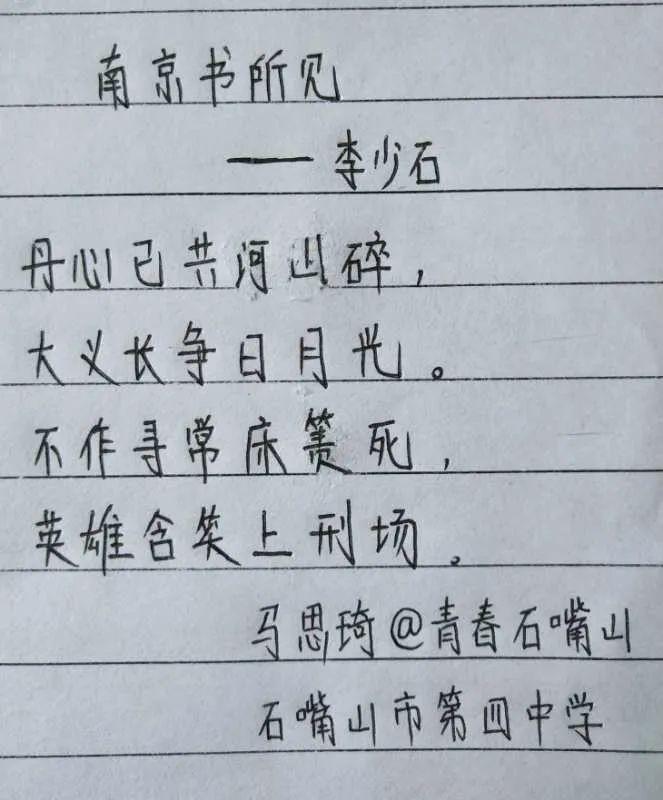 南京书所见
——李少石
丹心已共河山碎，
大义长争日月光。
不作寻常床箦死，
英雄含笑上刑场。
马思琦@青春石嘴山
石嘴山市第四中学